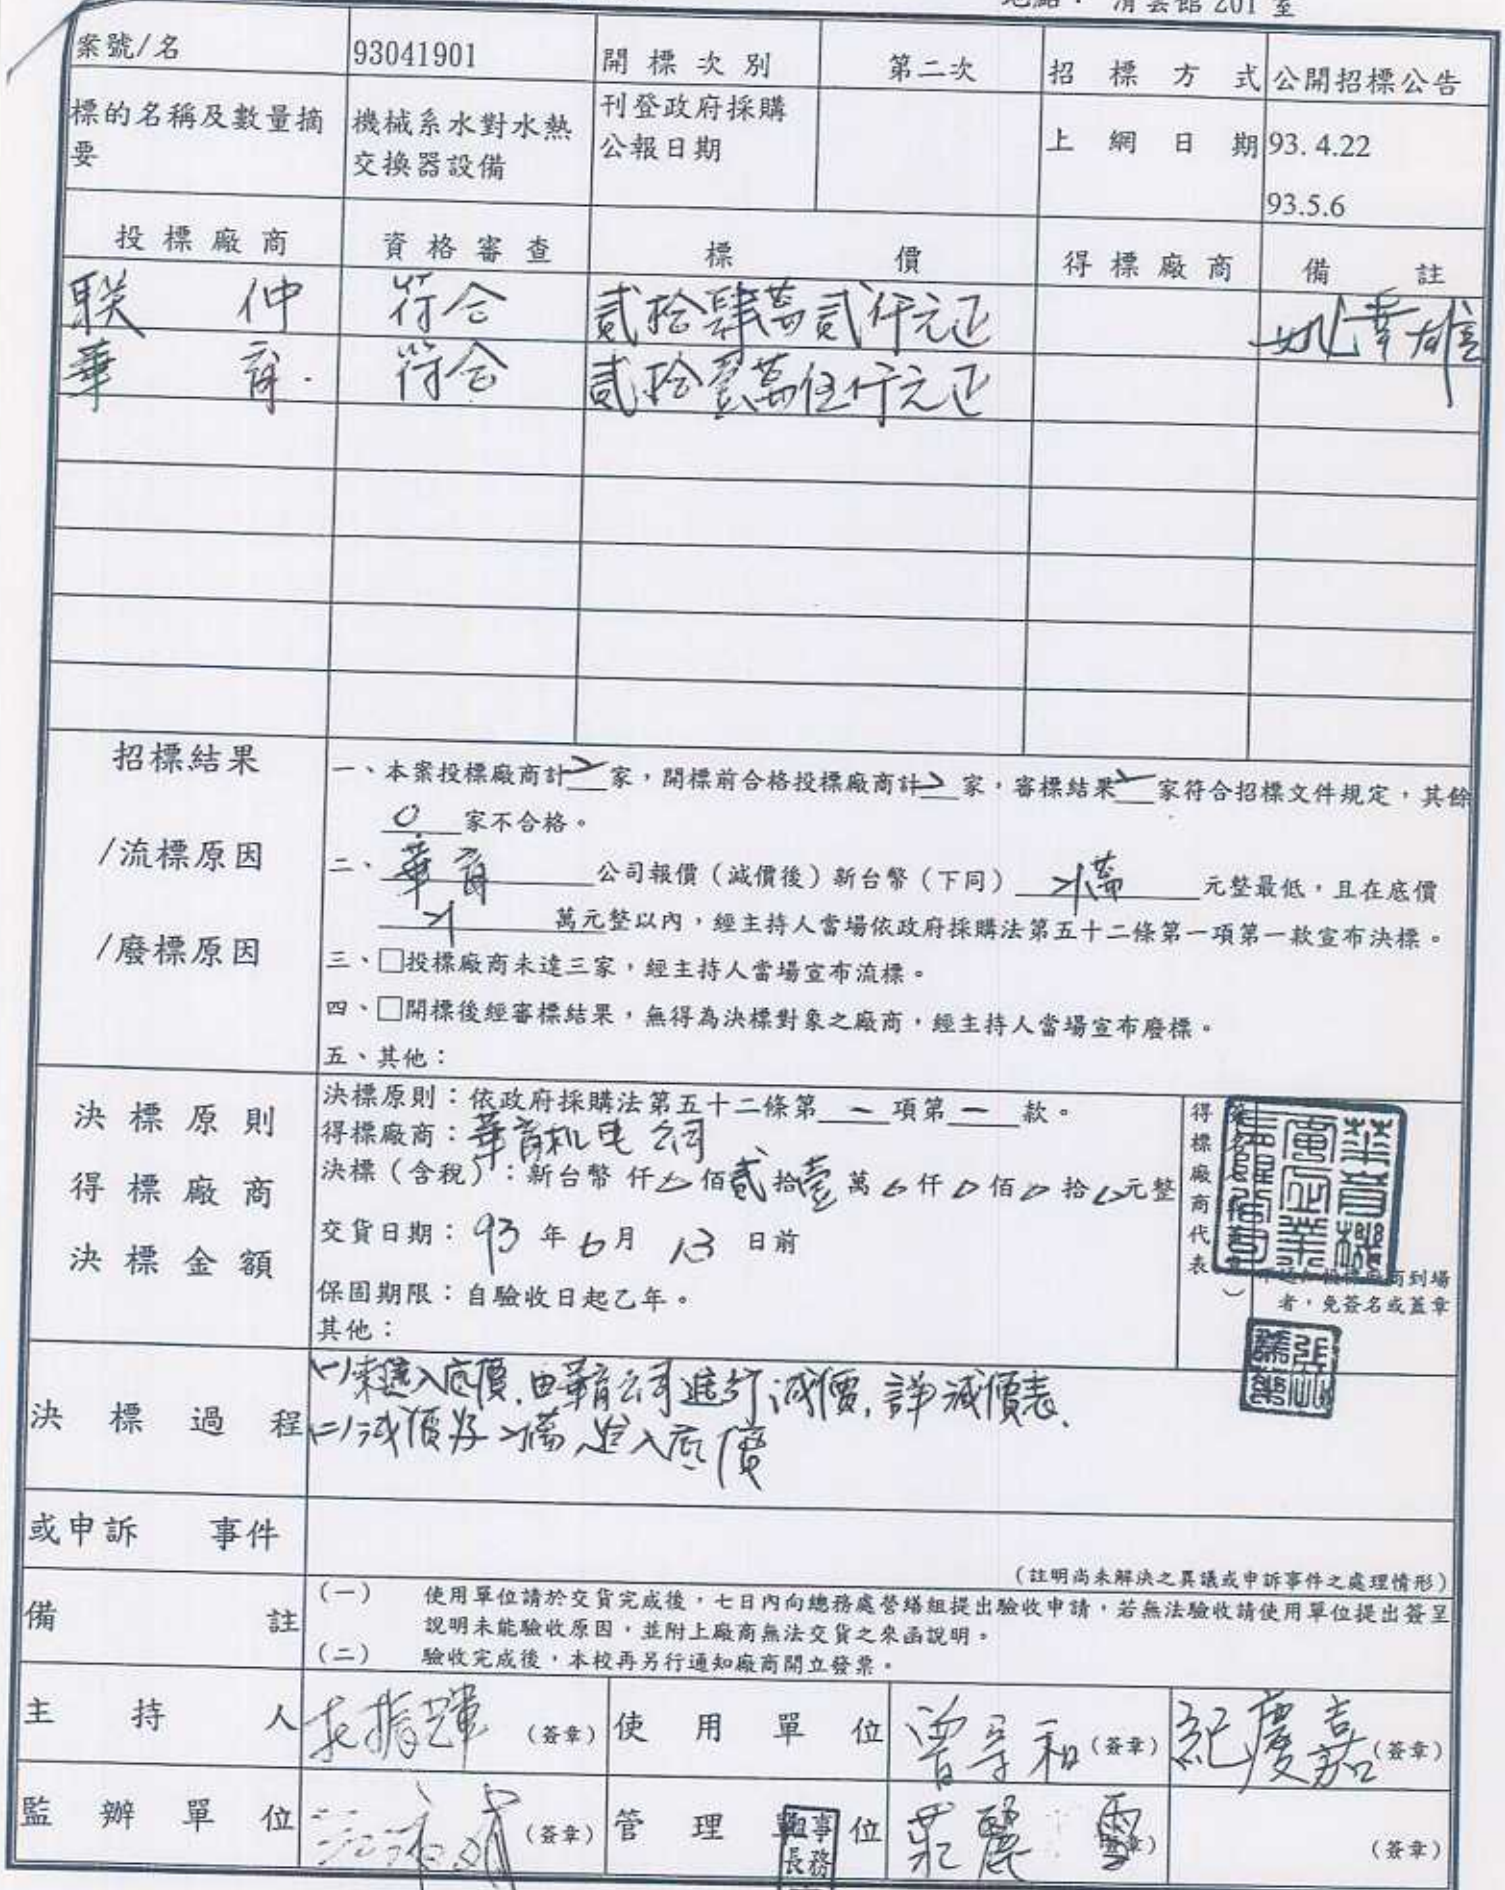 地點： 清雲館 201 室
案號/名 93041901 開標次別 第二次 招標方式 公開招標公告
標的名稱及數量摘要 機械系水對水熱交換器設備 刊登政府採購公報日期 上網日期 93.4.22
93.5.6
投標廠商 資格審查 標價 得標廠商 備註
联仲 符合 貳拾肆萬貳仟元正
華育 符合 貳拾壹萬伍仟元正
招標結果
/流標原因
/廢標原因
一、本案投標廠商計 2 家，開標前合格投標廠商計 2 家，審標結果 2 家符合招標文件規定，其餘
0 家不合格。
二、華育 公司報價（減價後）新台幣（下同） 21萬 元整最低，且在底價
21 萬元整以內，經主持人當場依政府採購法第五十二條第一項第一款宣布決標。
三、□投標廠商未達三家，經主持人當場宣布流標。
四、□開標後經審標結果，無得為決標對象之廠商，經主持人當場宣布廢標。
五、其他：
決標原則
得標廠商
決標金額
決標原則：依政府採購法第五十二條第 一 項第 一 款。
得標廠商：華育机电公司
決標（含稅）：新台幣 仟 0 佰貳拾壹萬 0 仟 0 佰 0 拾 0 元整
交貨日期：93 年 6 月 13 日前
保固期限：自驗收日起乙年。
其他：
得標廠商代表
商到場
者，免簽名或蓋章
決標過程
(一)未進入底價,由華育公司進行減價,詳減價表.
(二)減價為21萬,進入底價
或申訴 事件
（註明尚未解決之異議或申訴事件之處理情形）
備註
（一） 使用單位請於交貨完成後，七日內向總務處營繕組提出驗收申請，若無法驗收請使用單位提出簽呈
說明未能驗收原因，並附上廠商無法交貨之來函說明。
（二） 驗收完成後，本校再另行通知廠商開立發票。
主持人 （簽章） 使用單位 （簽章） 紀慶嘉 （簽章）
監辦單位 （簽章） 管理 位 （簽章）